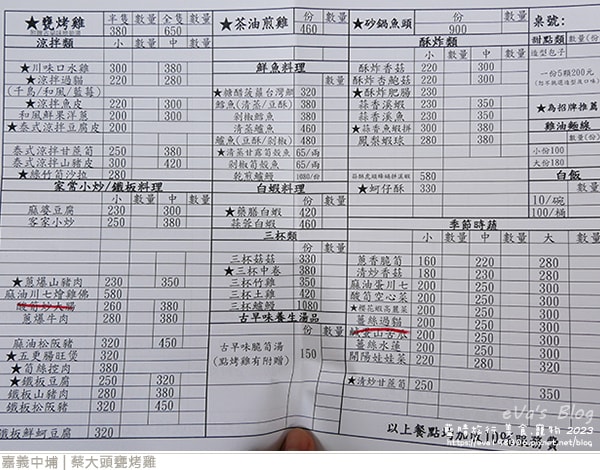 ★甕烤雞 半隻 數量 全隻 數量
380 650
涼拌類 小 數量 中 數量
★川味口水雞 300 380
★涼拌過貓 220 280
(千島/和風/藍莓)
★涼拌魚皮 220 300
和風鮮果洋蔥 200 300
★泰式涼拌豆腐皮 200
泰式涼拌甘蔗筍 250 380
泰式涼拌山豬皮 300 420
★綠竹筍沙拉 280
家常小炒/鐵板料理 小 數量 中 數量
麻婆豆腐 230 300
客家小炒 250 380
★蔥爆山豬肉 230 350
麻油川七燴雞佛 580
酸筍炒大腸 260 380
蔥爆牛肉 280 380
麻油松阪豬 320 450
★五更腸旺煲 320
★筍絲控肉 380
★鐵板豆腐 250 320
鐵板山豬肉 280 380
鐵板松阪豬 320 450
鐵板鮮蚵豆腐 320
★茶油煎雞 份 數量
460
鮮魚料理 數量
★糖醋菠蘿台灣鯛 320
鱈魚(清蒸/豆酥) 380
剁椒鱈魚 380
清蒸鱸魚 460
鱸魚(豆酥/剁椒) 480
★清蒸甘露筍殼魚 65/兩
剁椒筍殼魚 65/兩
乾煎鱸鰻 1080/份
白蝦料理 份 數量
★藥膳白蝦 420
蒜蓉白蝦 460
三杯類 份 數量
三杯菇菇 330
★三杯中卷 380
三杯竹雞 350
三杯土雞 420
三杯鱸鰻 1080
古早味養生湯品
份 數量
古早味脆筍湯 150
(點烤雞有附贈)
★砂鍋魚頭 份 數量
900
酥炸類 小 數量 中 數量
酥炸香菇 220 300
酥炸杏鮑菇 220 320
★酥炸肥腸 230
蒜香溪蝦 230 350
蒜香溪魚 230 350
★蒜香魚蝦拼 230 380
鳳梨蝦球 280 380
580
★蚵仔酥 330
季節時蔬
小 數量 中 數量 大 數量
蔥香脆筍 160 220 280
清炒香菇 180 230 280
麻油蛋川七 200 250 300
酸筍空心菜 200 250 300
★櫻花蝦高麗菜 200 250 300
薑絲過貓 200 250 300
鹹蛋山苦瓜 200 250 300
薑絲水蓮 200 250 300
開陽娃娃菜 220 280 320
★清炒甘蔗筍 250 350
桌號:
甜點類 數量(份)
造型包子
一份5顆200元
★為招牌推薦
雞油麵線
數量(份)
小份100
大份180
白飯
數量
10/碗
100/桶
以上餐點均加收10%服務費
eVa's Blog
嘉義中埔 | 蔡大頭甕烤雞